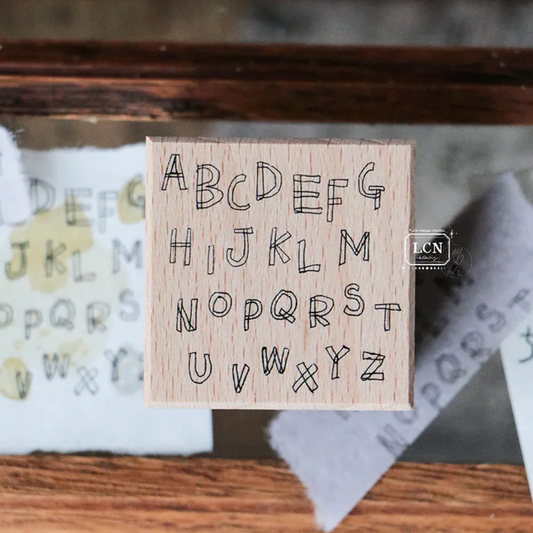 ABCDEFG
HIJKLM
NOPQRST
UVWXYZ
LCN